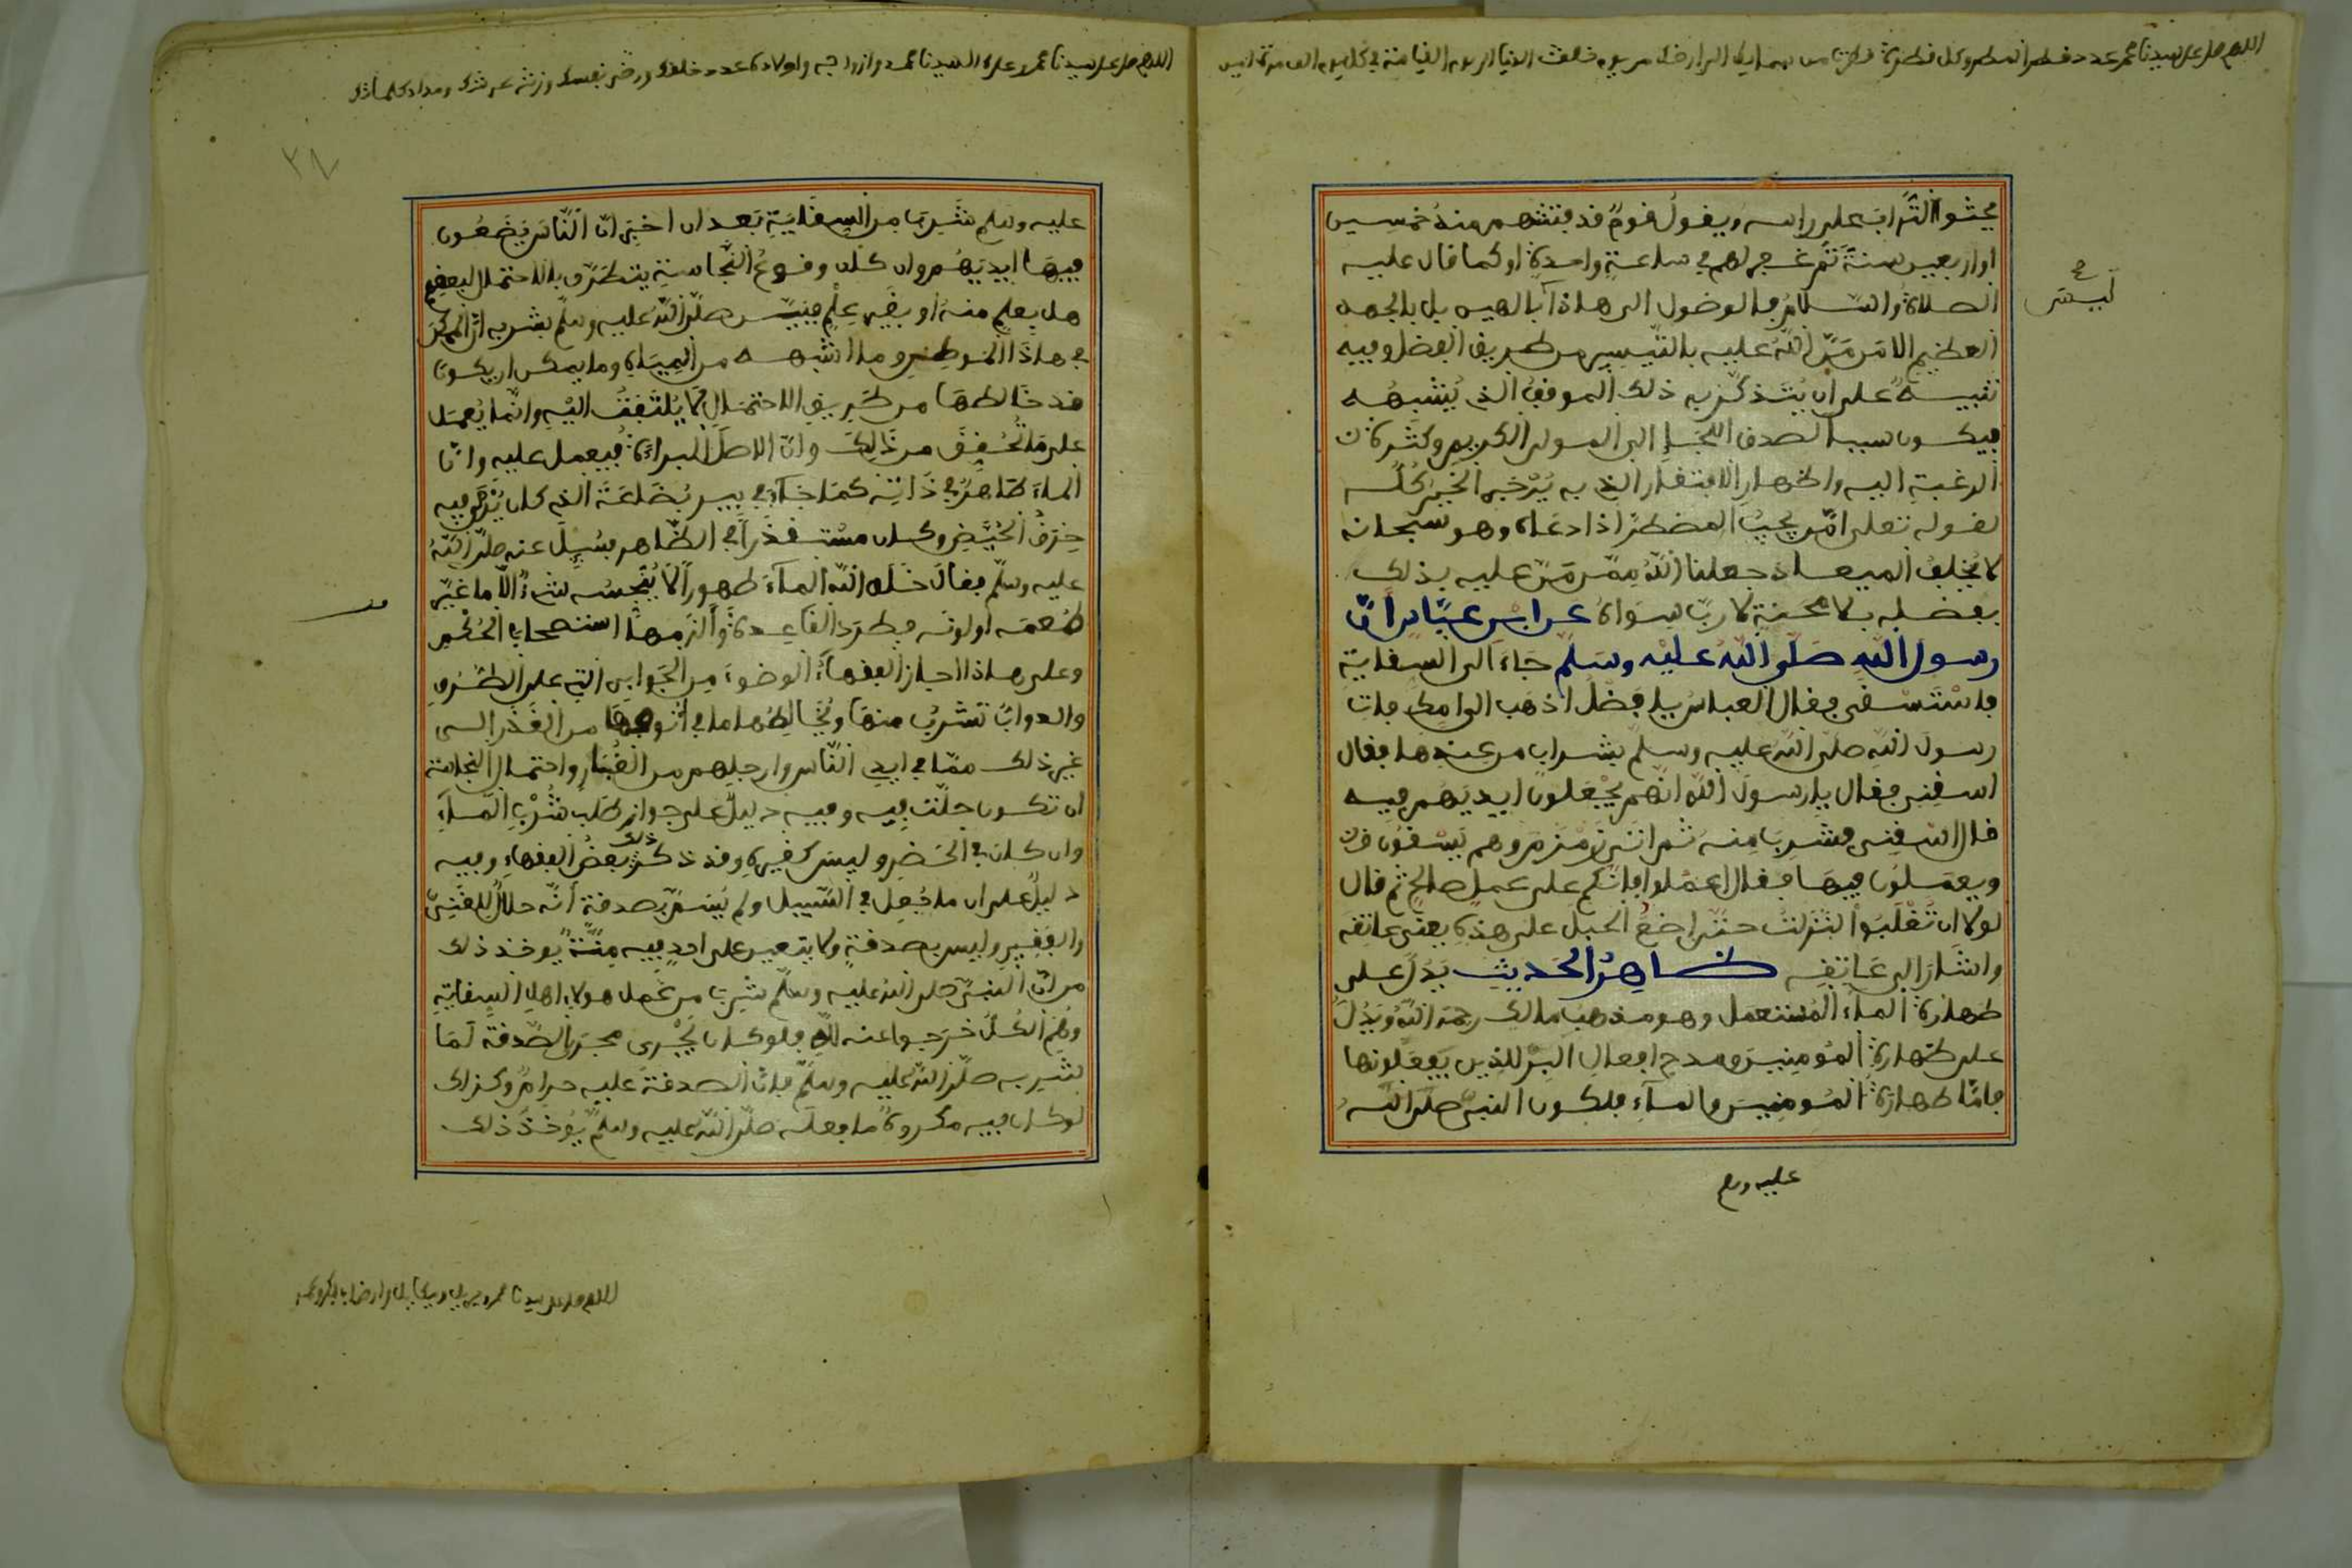 اللهم صل على سيدنا محمد عدد قطر المطر وكل قطرة قطرت من سمايك الى ارضك من يوم خلقت الدنيا الى يوم القيامة في كل يوم الف مرة
يحثوا التراب على راسه ويقول قوم قد فتنتهم منذ خمسين
او اربعين سنة ثم غفر لهم في ساعة واحدة او كما قال عليه
الصلاة والسلام فالوصول الى هاذا ءاياَ لهين بل بالجهد
العظيم الا من من الله عليه بالتيسير من طريق الفضل وفيه
تنبيه على ان يتذكر به ذلك الموفق الذي يشبهه
فيكون سببا لصدق اللجإ الى المولى الكريم وكثرة
الرغبة اليه واظهار الافتقار الذي به يرجى الخير كله
لقوله تعلى امن يجيب المضطر اذا دعاه وهو سبحانه
لا يخلف الميعاد جعلنا الله ممن من عليه بذلك
بفضله بلا محنة لا رب سواه عن ابن عباس ان
رسول الله صلى الله عليه وسلم جاء الى السقاية
فاستسقى فقال العباس يا فضل اذهب الى امك فات
رسول الله صلى الله عليه وسلم بشراب من عندها فقال
اسقني فقال يا رسول الله انهم يجعلون ايديهم فيه
قال اسقني فشرب منه ثم اتى زمزم وهم يسقون
ويعملون فيها فقال اعملوا فانكم على عمل صالح ثم قال
لولا ان تغلبوا لنزلت حتى اضع الحبل على هذه يعني عاتقه
واشار الى عاتقه ظاهر الحديث يدل على
طهارة الماء المستعمل وهو مذهب مالك رحمه الله ويدل
على طهارة المومنين ومدح افعال البر للذين يفعلونها
فاما طهارة المومنين والماء فلكون النبي صلى الله
عليه وسلم
اللهم صل على سيدنا محمد وعلى ال سيدنا محمد وازواجه واولاده عدد خلقك ورضى نفسك وزنة عرشك ومداد كلماتك
٢٨
عليه وسلم شرب من السقاية بعد ان اخبر ان الناس يضعون
فيها ايديهم وان كان وقوع النجاسة يتطرق بالاحتمال لبعضهم
هل بعلم منه او بغير علم فبين صلى الله عليه وسلم بشربه ان الممكن
في هاذا الموطن وما اشبهه من المياه وما يمكن ان يكون
قد خالطها من طريق الاحتمال لا يلتفت اليه وانما يعمل
على ما تحقق من ذالك وان الاصل البراءة فيعمل عليه وان
الماء طاهر في ذاته كما جاء في بير بضاعة الذي كان يرمى فيه
خرق الحيض وكان مستقذرا في الظاهر فسيل عنه صلى الله
عليه وسلم فقال خلق الله الماء طهورا لا ينجسه شيء الا ما غير
طعمه او لونه فطرد القاعدة والزمها استصحاب الحكم
وعلى هاذا اجاز الفقهاء الوضوء من الجوابي التي على الطرق
والدواب تشرب منها ويخالطها ما في افواهها من القذر الى
غير ذلك مما في ايدي الناس وارجلهم من الغبار واحتمال النجاسة
ان تكون حلت فيه وفيه دليل على جواز طلب شرب الماء
وان كان في الحضر وليس كغيره وقد ذكر ذلك بعض الفقهاء وفيه
دليل على ان ما جعل في السبيل ولم يسم بصدقة انه حلال للغني
والفقير وليس بصدقة ولا يتعين على احد فيه منة يوخذ ذلك
من ان النبي صلى الله عليه وسلم شرب من عمل هولاء اهل السقاية
وهم الكل خرجوا عنه لله فلو كان يجري مجرى الصدقة لما
شربه صلى الله عليه وسلم فان الصدقة عليه حرام وكذلك
لو كان فيه مكروه ما فعله صلى الله عليه وسلم يوخذ ذلك